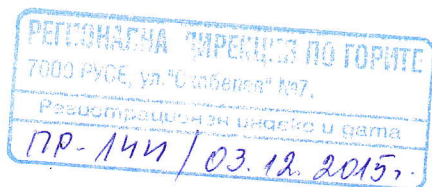 РЕГИОНАЛНА ДИРЕКЦИЯ ПО ГОРИТЕ
7000 РУСЕ, ул. №7.
Регистрационен индекс и дата
03.12.2015г.